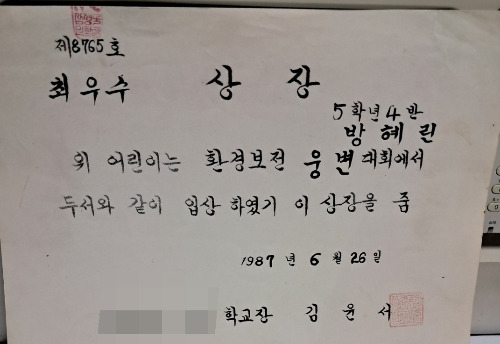 제8765호
최우수 상 장
5학년4반
방 혜 린
위 어린이는 환경보전 웅 변 대회에서
두서와 같이 입상 하였기 이 상장을 줌
1987 년 6 월 26 일
학교장 김 윤 서